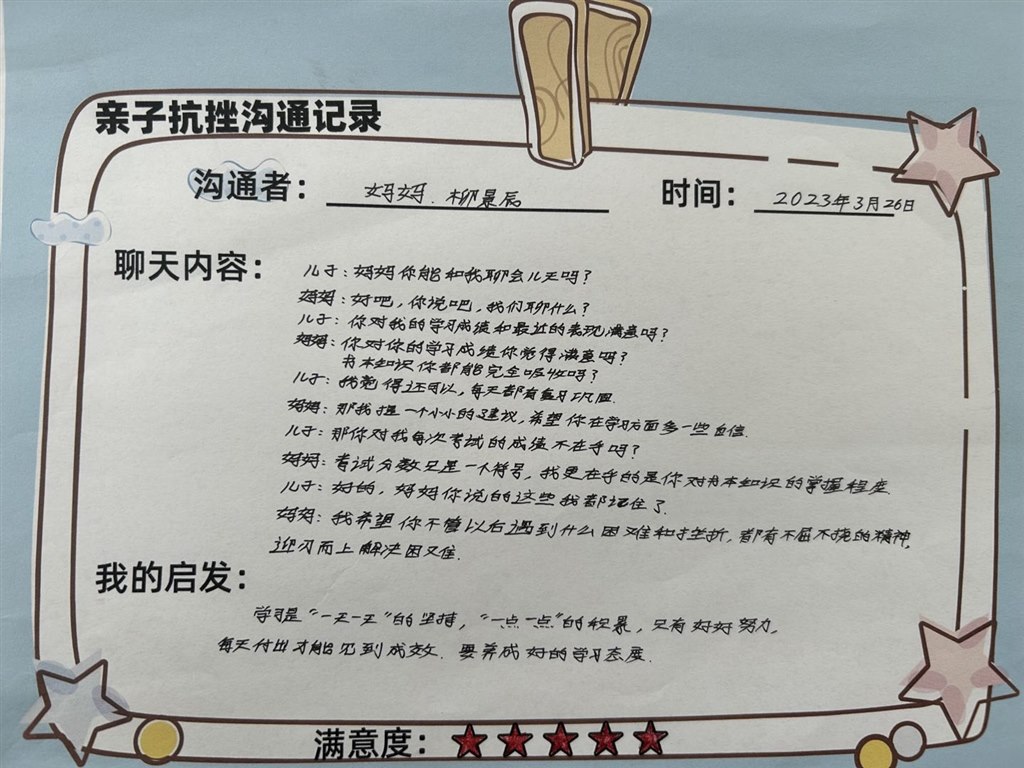 亲子抗挫沟通记录
沟通者： 妈妈. 柳景辰 时间： 2023年3月26日
聊天内容： 儿子：妈妈你能和我聊会儿天吗？
妈妈：好吧，你说吧，我们聊什么？
儿子：你对我的学习成绩和最近的表现满意吗？
妈妈：你对你的学习成绩你觉得满意吗？
书本知识你都能完全吸收吗？
儿子：我觉得还可以，每天都有复习巩固.
妈妈：那我提一个小小的建议，希望你在学习方面多一些自信.
儿子：那你对我每次考试的成绩不在乎吗？
妈妈：考试分数只是一个符号，我更在乎的是你对书本知识的掌握程度.
儿子：好的，妈妈你说的这些我都记住了.
妈妈：我希望你不管以后遇到什么困难和挫折，都有不屈不挠的精神，
迎刃而上解决困难.
我的启发：
学习是“一天一天”的坚持，“一点一点”的积累，只有好好努力，
每天付出才能见到成效. 要养成好的学习态度.
满意度：